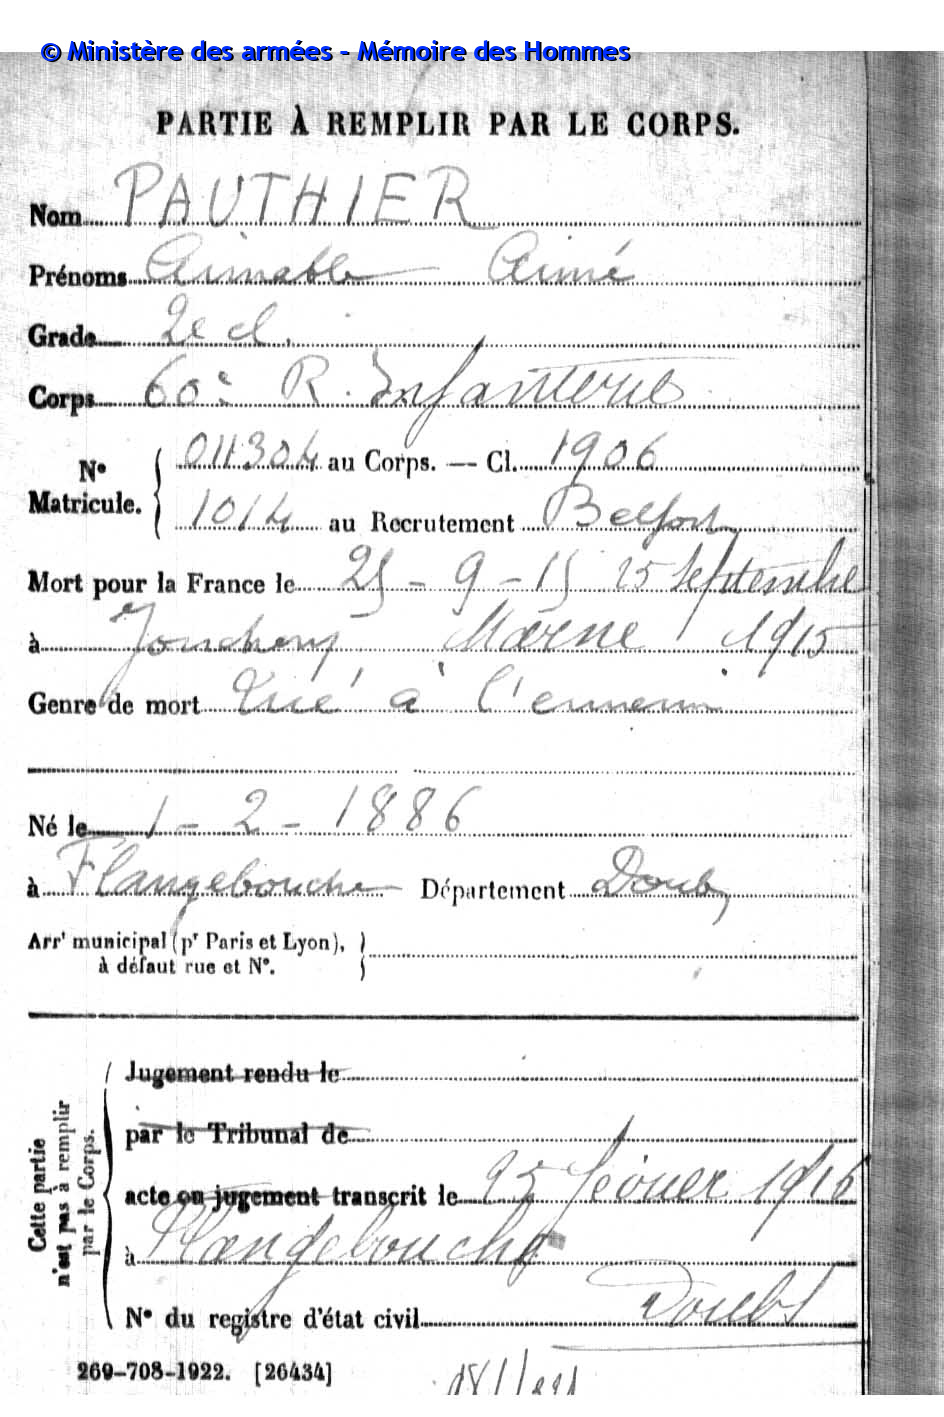 © Ministère des armées - Mémoire des Hommes
PARTIE À REMPLIR PAR LE CORPS.
Nom PAUTHIER
Prénoms Aimable Aimé
Grade 2e cl.
Corps 60e R. Infanterie
N° Matricule. 011304 au Corps. — Cl. 1906
1014 au Recrutement Belfort
Mort pour la France le 25 - 9 - 15 25 Septembre
à Jonchery Marne 1915
Genre de mort Tué à l'ennemi
Né le 1 - 2 - 1886
à Flangebouche Département Doubs
Arrt municipal (pr Paris et Lyon),
à défaut rue et N°.
Cette partie n'est pas à remplir par le Corps.
Jugement rendu le
par le Tribunal de
acte ou jugement transcrit le 25 février 1916
à Flangebouche
N° du registre d'état civil Doubs
269-708-1922. [26434]